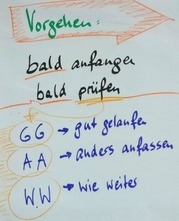 Vorgehen:
bald anfangen
bald prüfen
GG → gut gelaufen
AA → anders anfassen
W.W → wie weiter